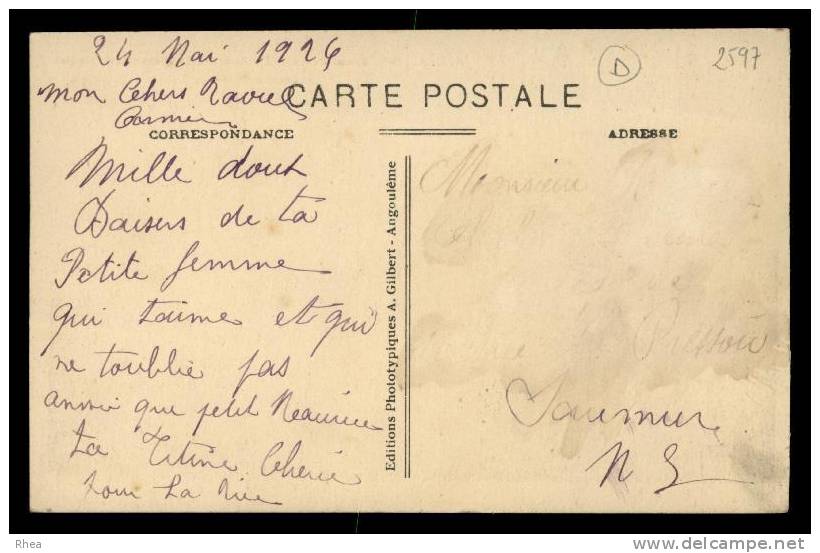 24 Mai 1926
2597
D
mon Chers Raoul
CARTE POSTALE
CORRESPONDANCE
ADRESSE
Mille doux
Baisers de ta
Petite femme
qui taime et qui
ne toublie pas
que petit Maurice
ta Titine Cherie
pour la vie
Editions Phototypiques A. Gilbert - Angoulême
Monsieur
Saumur
Rhea
www.delcampe.net